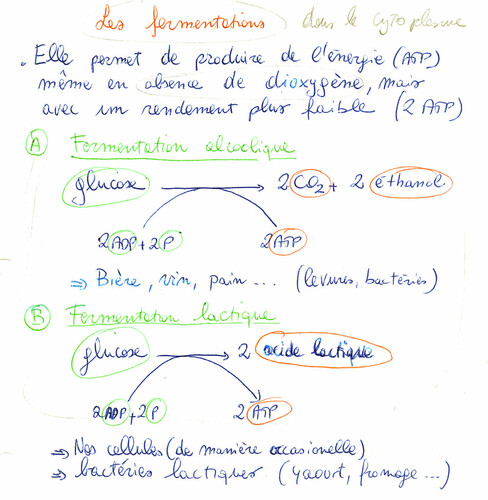 Les fermentations dans le cytoplasme
. Elle permet de produire de l'énergie (ATP)
même en absence de dioxygène, mais
avec un rendement plus faible (2 ATP)
A Fermentation alcoolique
glucose → 2 CO2 + 2 éthanol
2 ADP + 2 P 2 ATP
⇒ Bière, vin, pain ... (levures, bactéries)
B Fermentation lactique
glucose → 2 acide lactique
2 ADP + 2 P 2 ATP
⇒ Nos cellules (de manière occasionelle)
⇒ bactéries lactiques (yaourt, fromage ...)